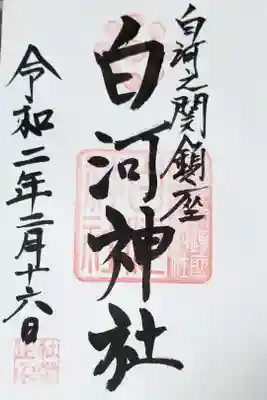 白河之関鎮座
白河神社
令和二年二月十六日